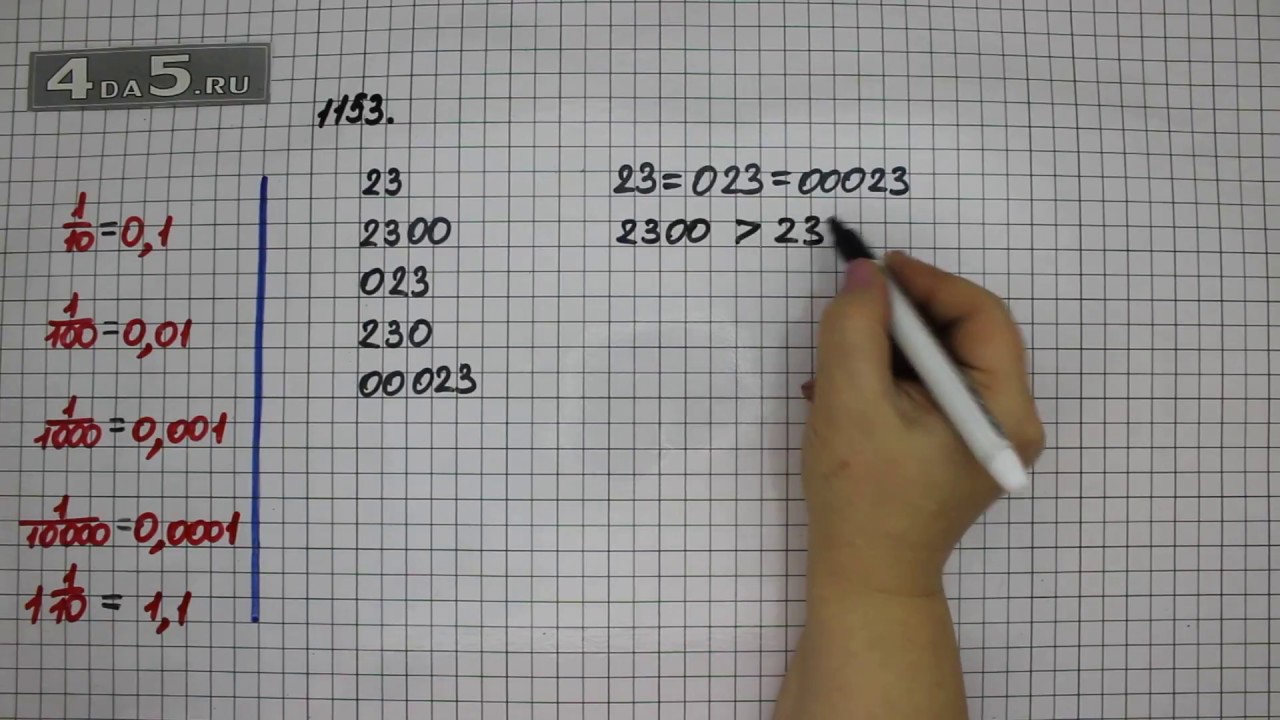 4DA5.RU
1153.
1/10 = 0,1
1/100 = 0,01
1/1000 = 0,001
1/10000 = 0,0001
1 1/10 = 1,1
23
2300
023
230
00023
23 = 023 = 00023
2300 > 23